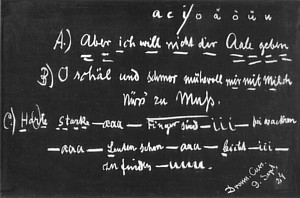 a c i / o ä ö ü u
A.) Aber ich will nicht dir Aale geben
B.) O schäl und schmor mühevoll mir mit Milch
Nüss' zu Mus.
C.) Harte starke — aaa — Finger sind — iii — bei
— aaa — Leuten schon — aaa — leicht — iii —
zu finden — uuuu.
9. Sept.
24